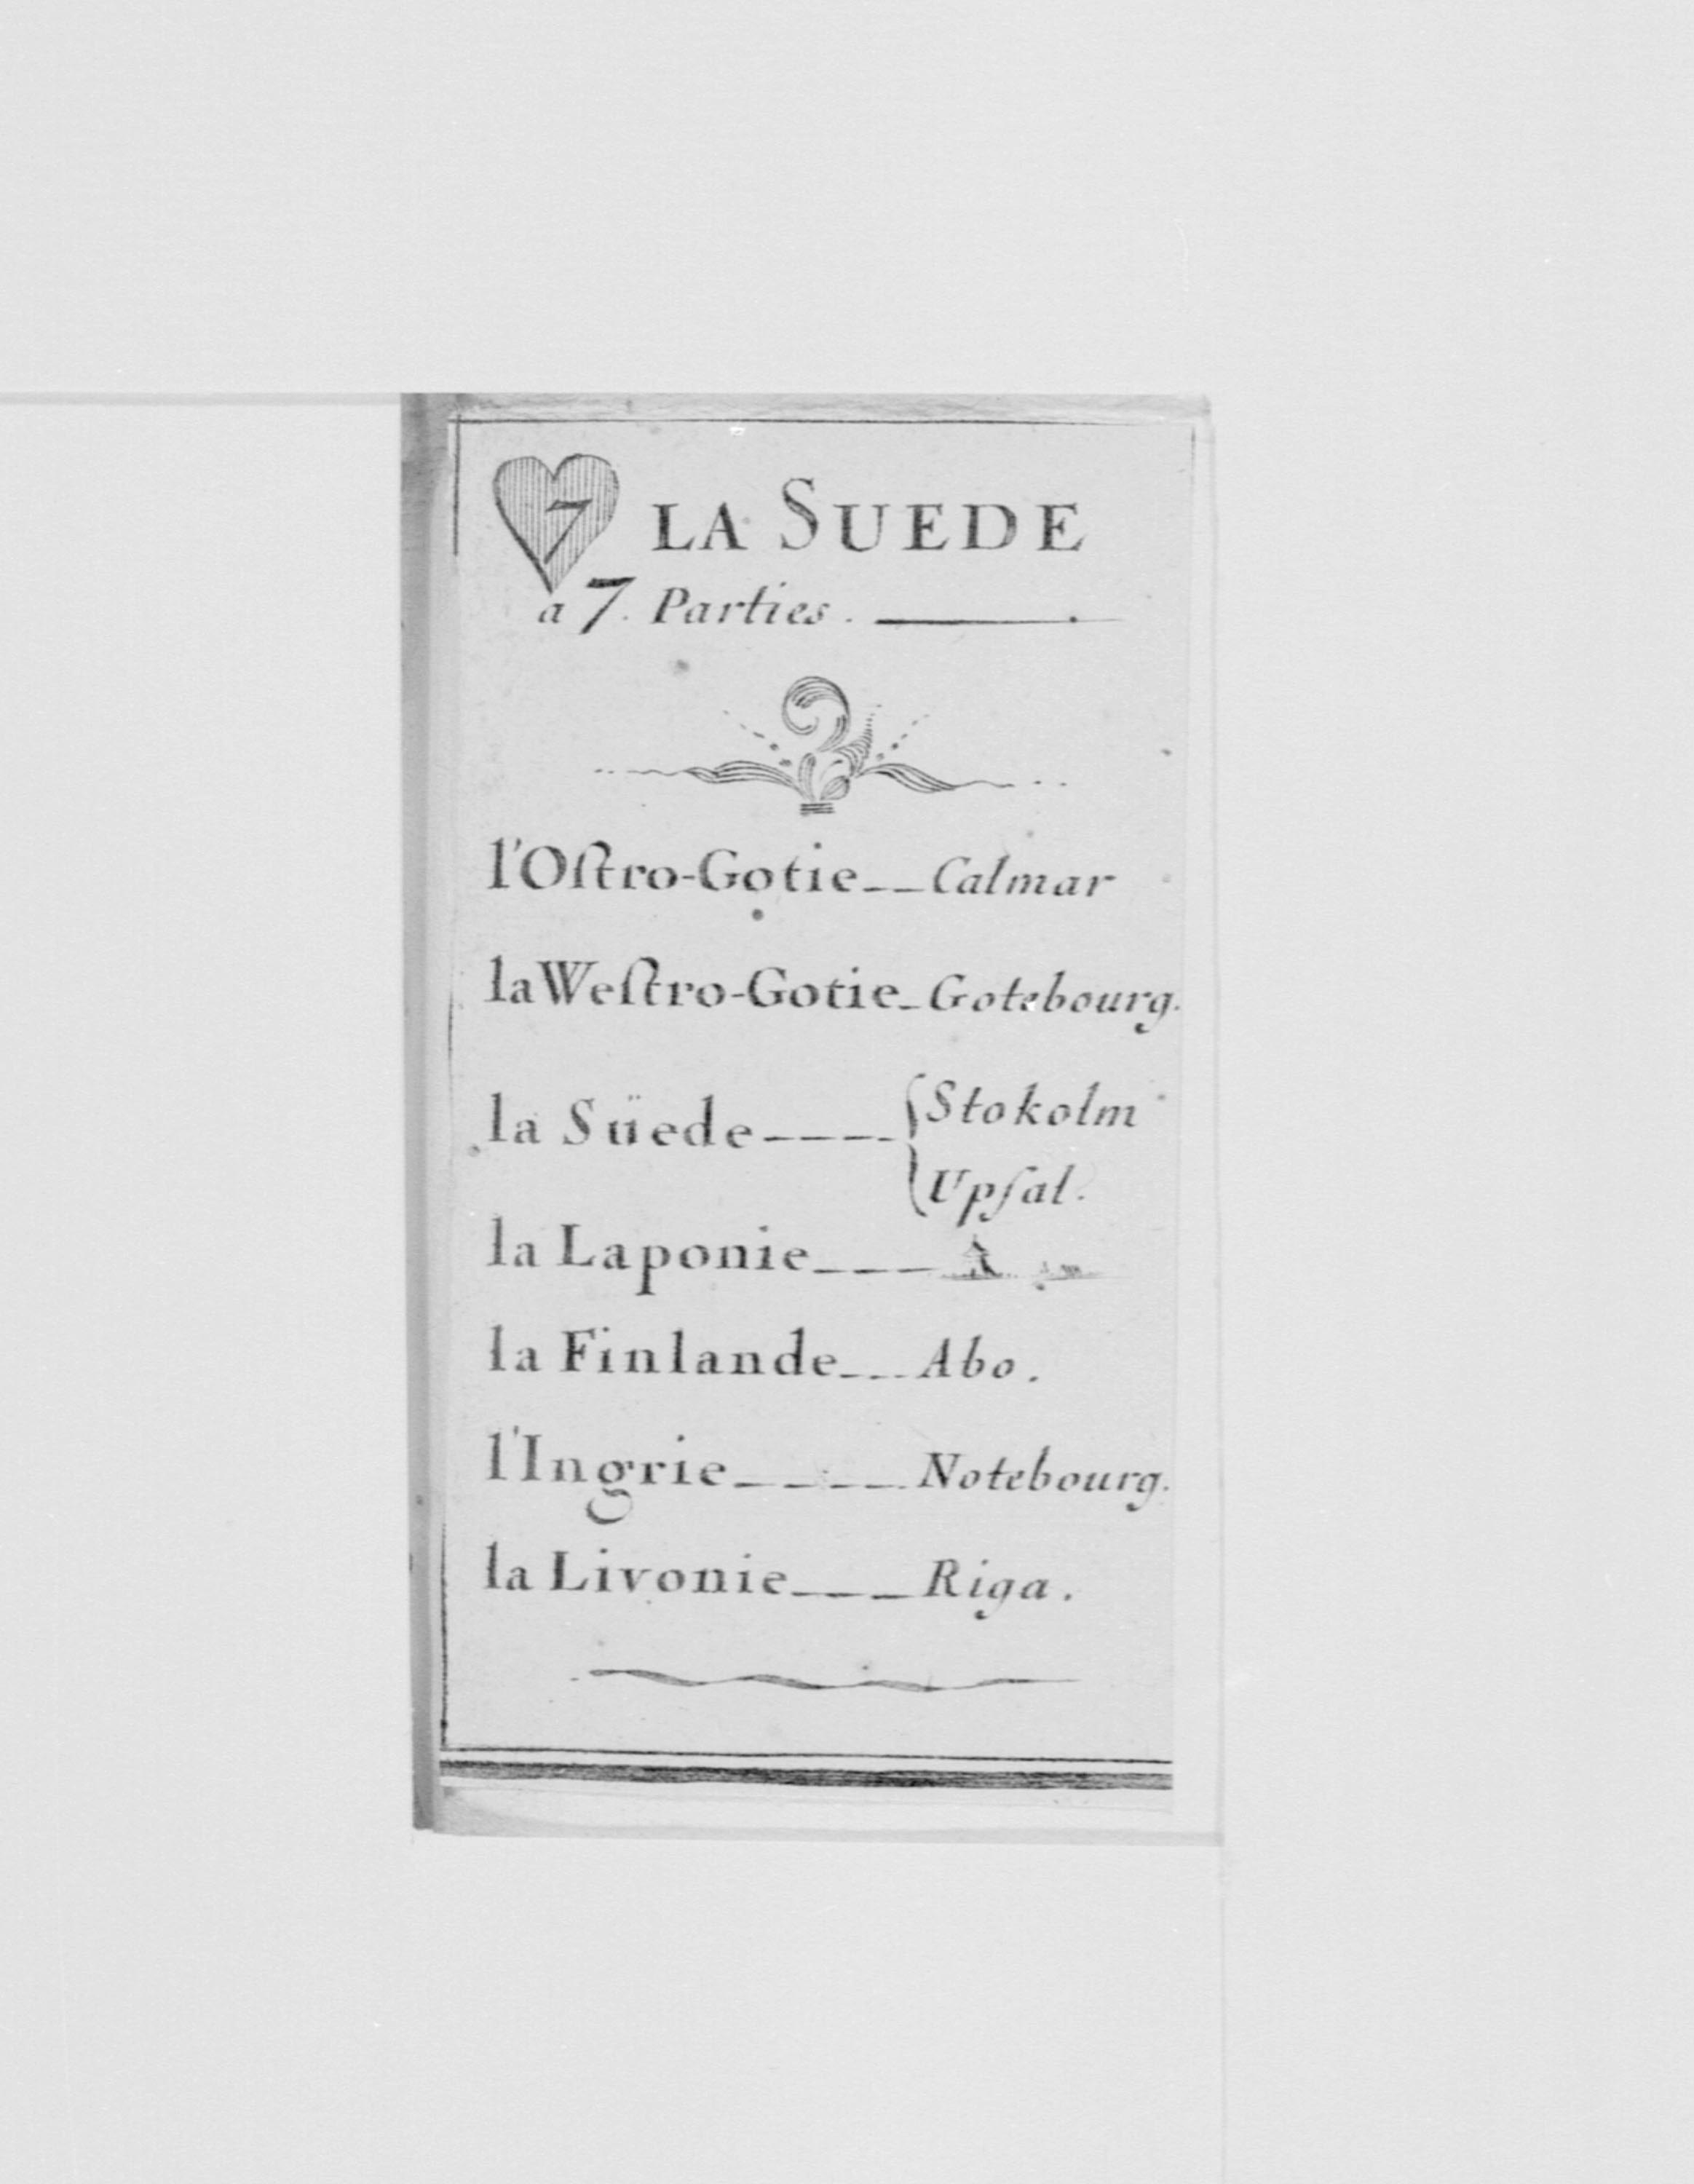 7 LA SUEDE
a 7. Parties.
l'Oſtro-Gotie__Calmar
la Weſtro-Gotie_Gotebourg.
la Süede----{Stokolm
{Upſal.
la Laponie___
la Finlande___Abo.
l'Ingrie____Notebourg.
la Livonie___Riga.